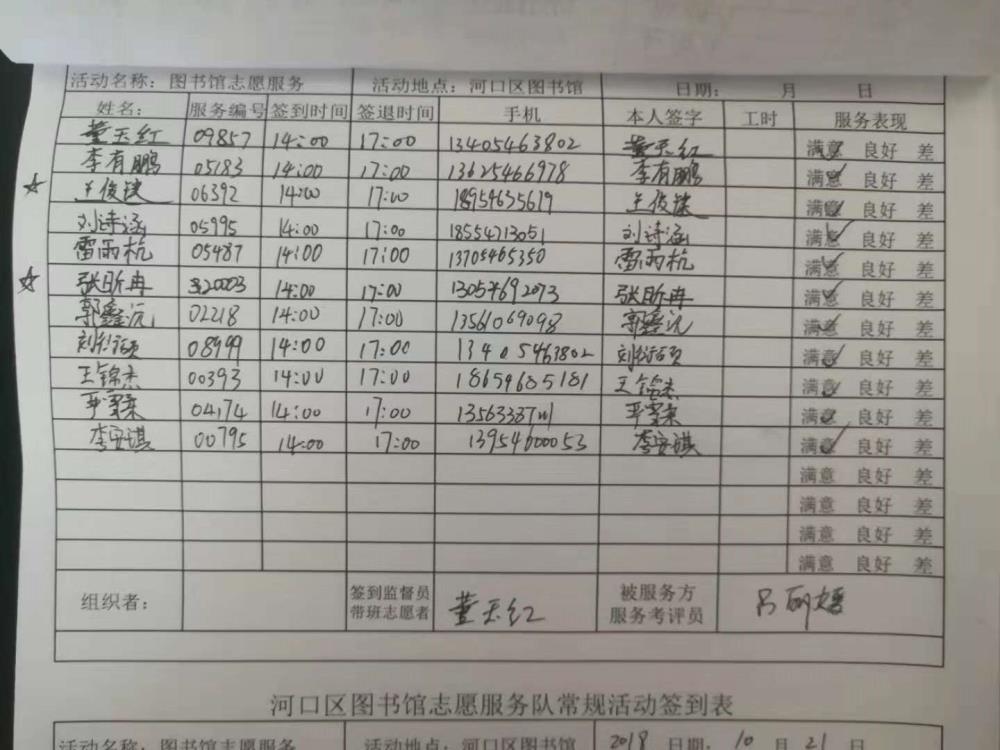 活动名称：图书馆志愿服务 活动地点：河口区图书馆 日期： 月 日
姓名： 服务编号 签到时间 签退时间 手机 本人签字 工时 服务表现
董玉红 09857 14:00 17:00 13405463802 董玉红 满意 良好 差
李有鹏 05183 14:00 17:00 13625466978 李有鹏 满意 良好 差
☆ 王俊 06392 14:00 17:00 18954635679 王俊 满意 良好 差
刘诗涵 05995 14:00 17:00 18554713051 刘诗涵 满意 良好 差
雷雨杭 05487 14:00 17:00 13705465350 雷雨杭 满意 良好 差
☆ 张昕冉 14:00 17:00 13054692073 张昕冉 满意 良好 差
郭鑫沅 02218 14:00 17:00 13561069098 郭鑫沅 满意 良好 差
刘衍硕 08999 14:00 17:00 13405463802 刘衍硕 满意 良好 差
王锦杰 00393 14:00 17:00 18654685181 王锦杰 满意 良好 差
04174 14:00 17:00 满意 良好 差
李安琪 00795 14:00 17:00 13954600053 李安琪 满意 良好 差
满意 良好 差
满意 良好 差
满意 良好 差
满意 良好 差
组织者： 签到监督员 带班志愿者 董玉红 被服务方 服务考评员 吕丽
河口区图书馆志愿服务队常规活动签到表
活动名称：图书馆志愿服务 活动地点：河口区图书馆 2018 日期：10 月 21 日